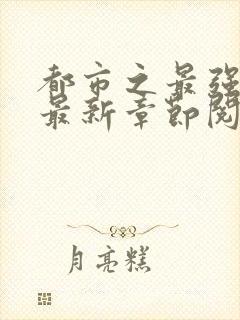 都市之最强
最新章节阅
月亮糕